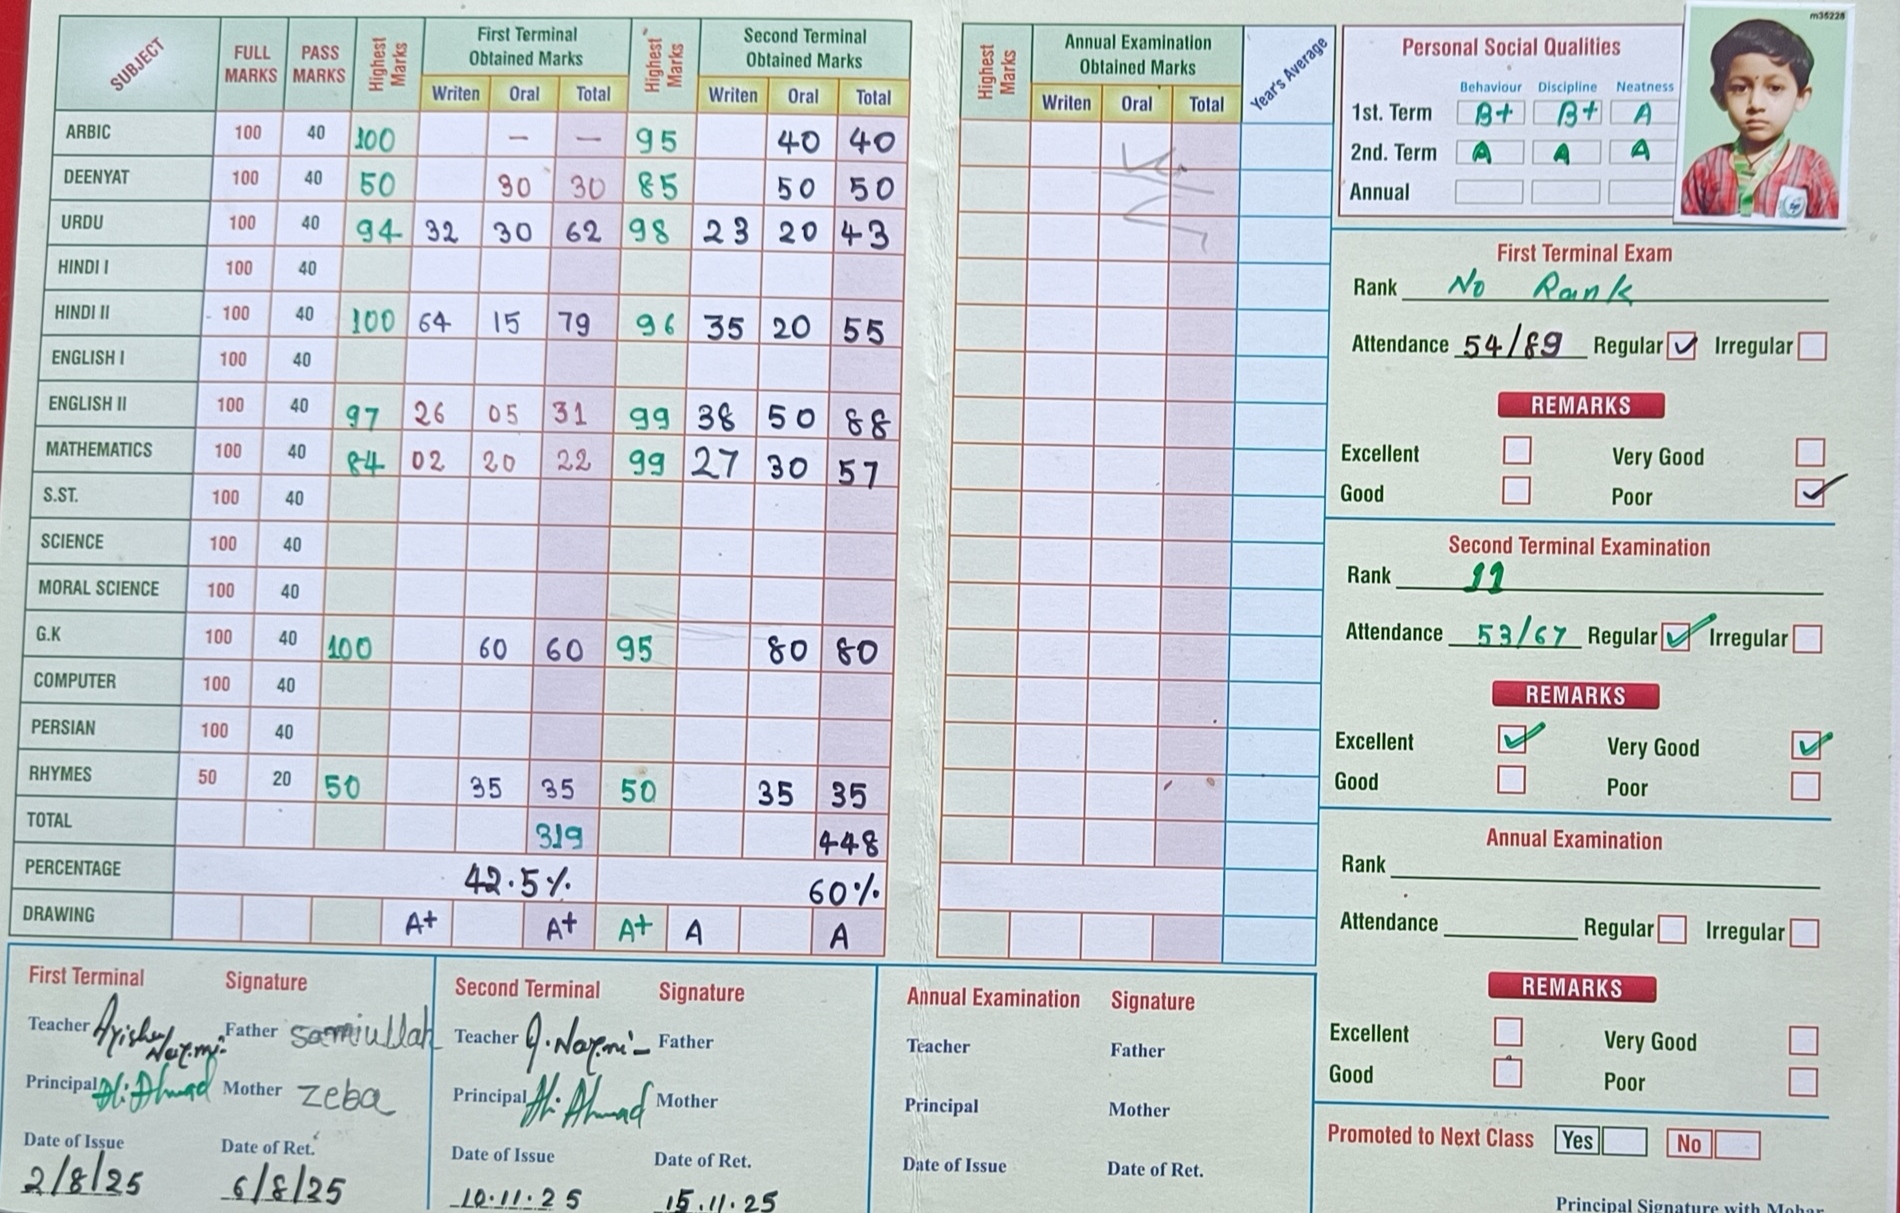 SUBJECT FULL MARKS PASS MARKS Highest Marks First Terminal Obtained Marks Highest Marks Second Terminal Obtained Marks
Writen Oral Total Writen Oral Total
ARBIC 100 40 100 — — 95 40 40
DEENYAT 100 40 50 30 30 85 50 50
URDU 100 40 94 32 30 62 98 23 20 43
HINDI I 100 40
HINDI II 100 40 100 64 15 79 96 35 20 55
ENGLISH I 100 40
ENGLISH II 100 40 97 26 05 31 99 38 50 88
MATHEMATICS 100 40 84 02 20 22 99 27 30 57
S.ST. 100 40
SCIENCE 100 40
MORAL SCIENCE 100 40
G.K 100 40 100 60 60 95 80 80
COMPUTER 100 40
PERSIAN 100 40
RHYMES 50 20 50 35 35 50 35 35
TOTAL 319 448
PERCENTAGE 42.5% 60%
DRAWING A+ A+ A+ A A
Highest Marks Annual Examination Obtained Marks Year's Average
Writen Oral Total
Personal Social Qualities
Behaviour Discipline Neatness
1st. Term B+ B+ A
2nd. Term A A A
Annual
m35228
First Terminal Exam
Rank No Rank
Attendance 54/89 Regular ✓ Irregular
REMARKS
Excellent Very Good
Good Poor ✓
Second Terminal Examination
Rank 11
Attendance 53/67 Regular ✓ Irregular
REMARKS
Excellent ✓ Very Good ✓
Good Poor
Annual Examination
Rank
Attendance Regular Irregular
REMARKS
Excellent Very Good
Good Poor
Promoted to Next Class Yes No
Principal Signature with Mohar
First Terminal Signature
Teacher Ayisha Nazmi Father samiullah
Principal Ali Ahmad Mother zeba
Date of Issue Date of Ret.
2/8/25 6/8/25
Second Terminal Signature
Teacher A. Nazmi Father
Principal Ali Ahmad Mother
Date of Issue Date of Ret.
10.11.25 15.11.25
Annual Examination Signature
Teacher Father
Principal Mother
Date of Issue Date of Ret.